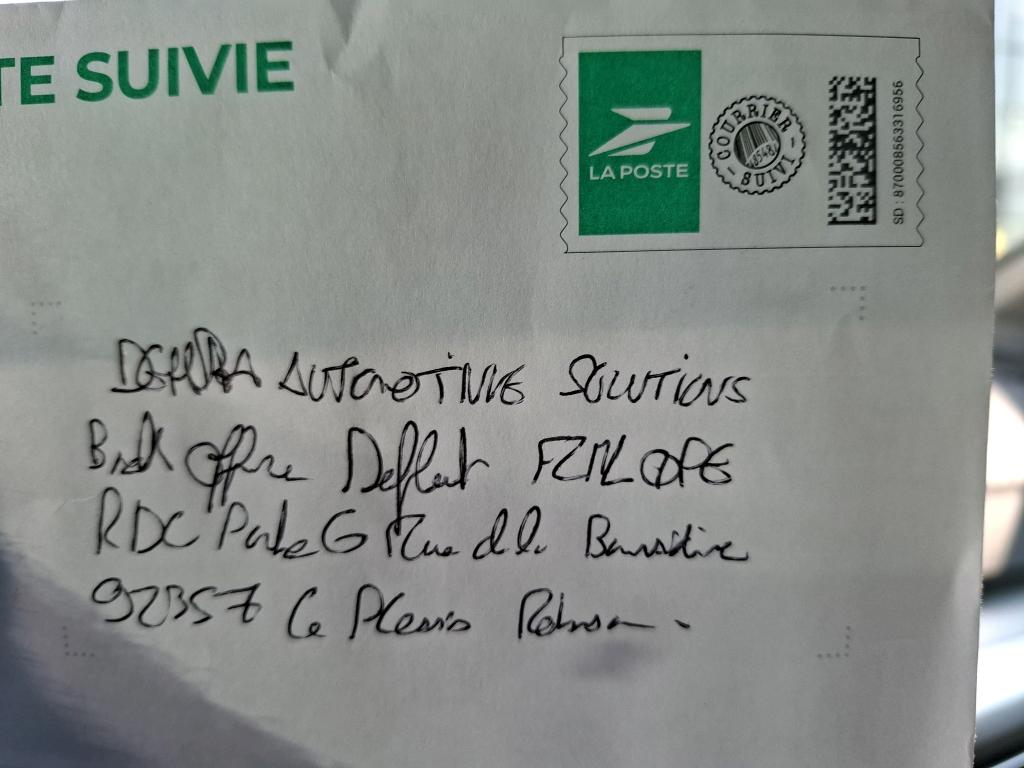 TE SUIVIE
LA POSTE
COURRIER
SUIVI
SD : 87000856331 6956
AUTOMOTIVE SOLUTIONS
Back Office
RDC Porte G Rue de la
92357 Le Plessis Robinson.